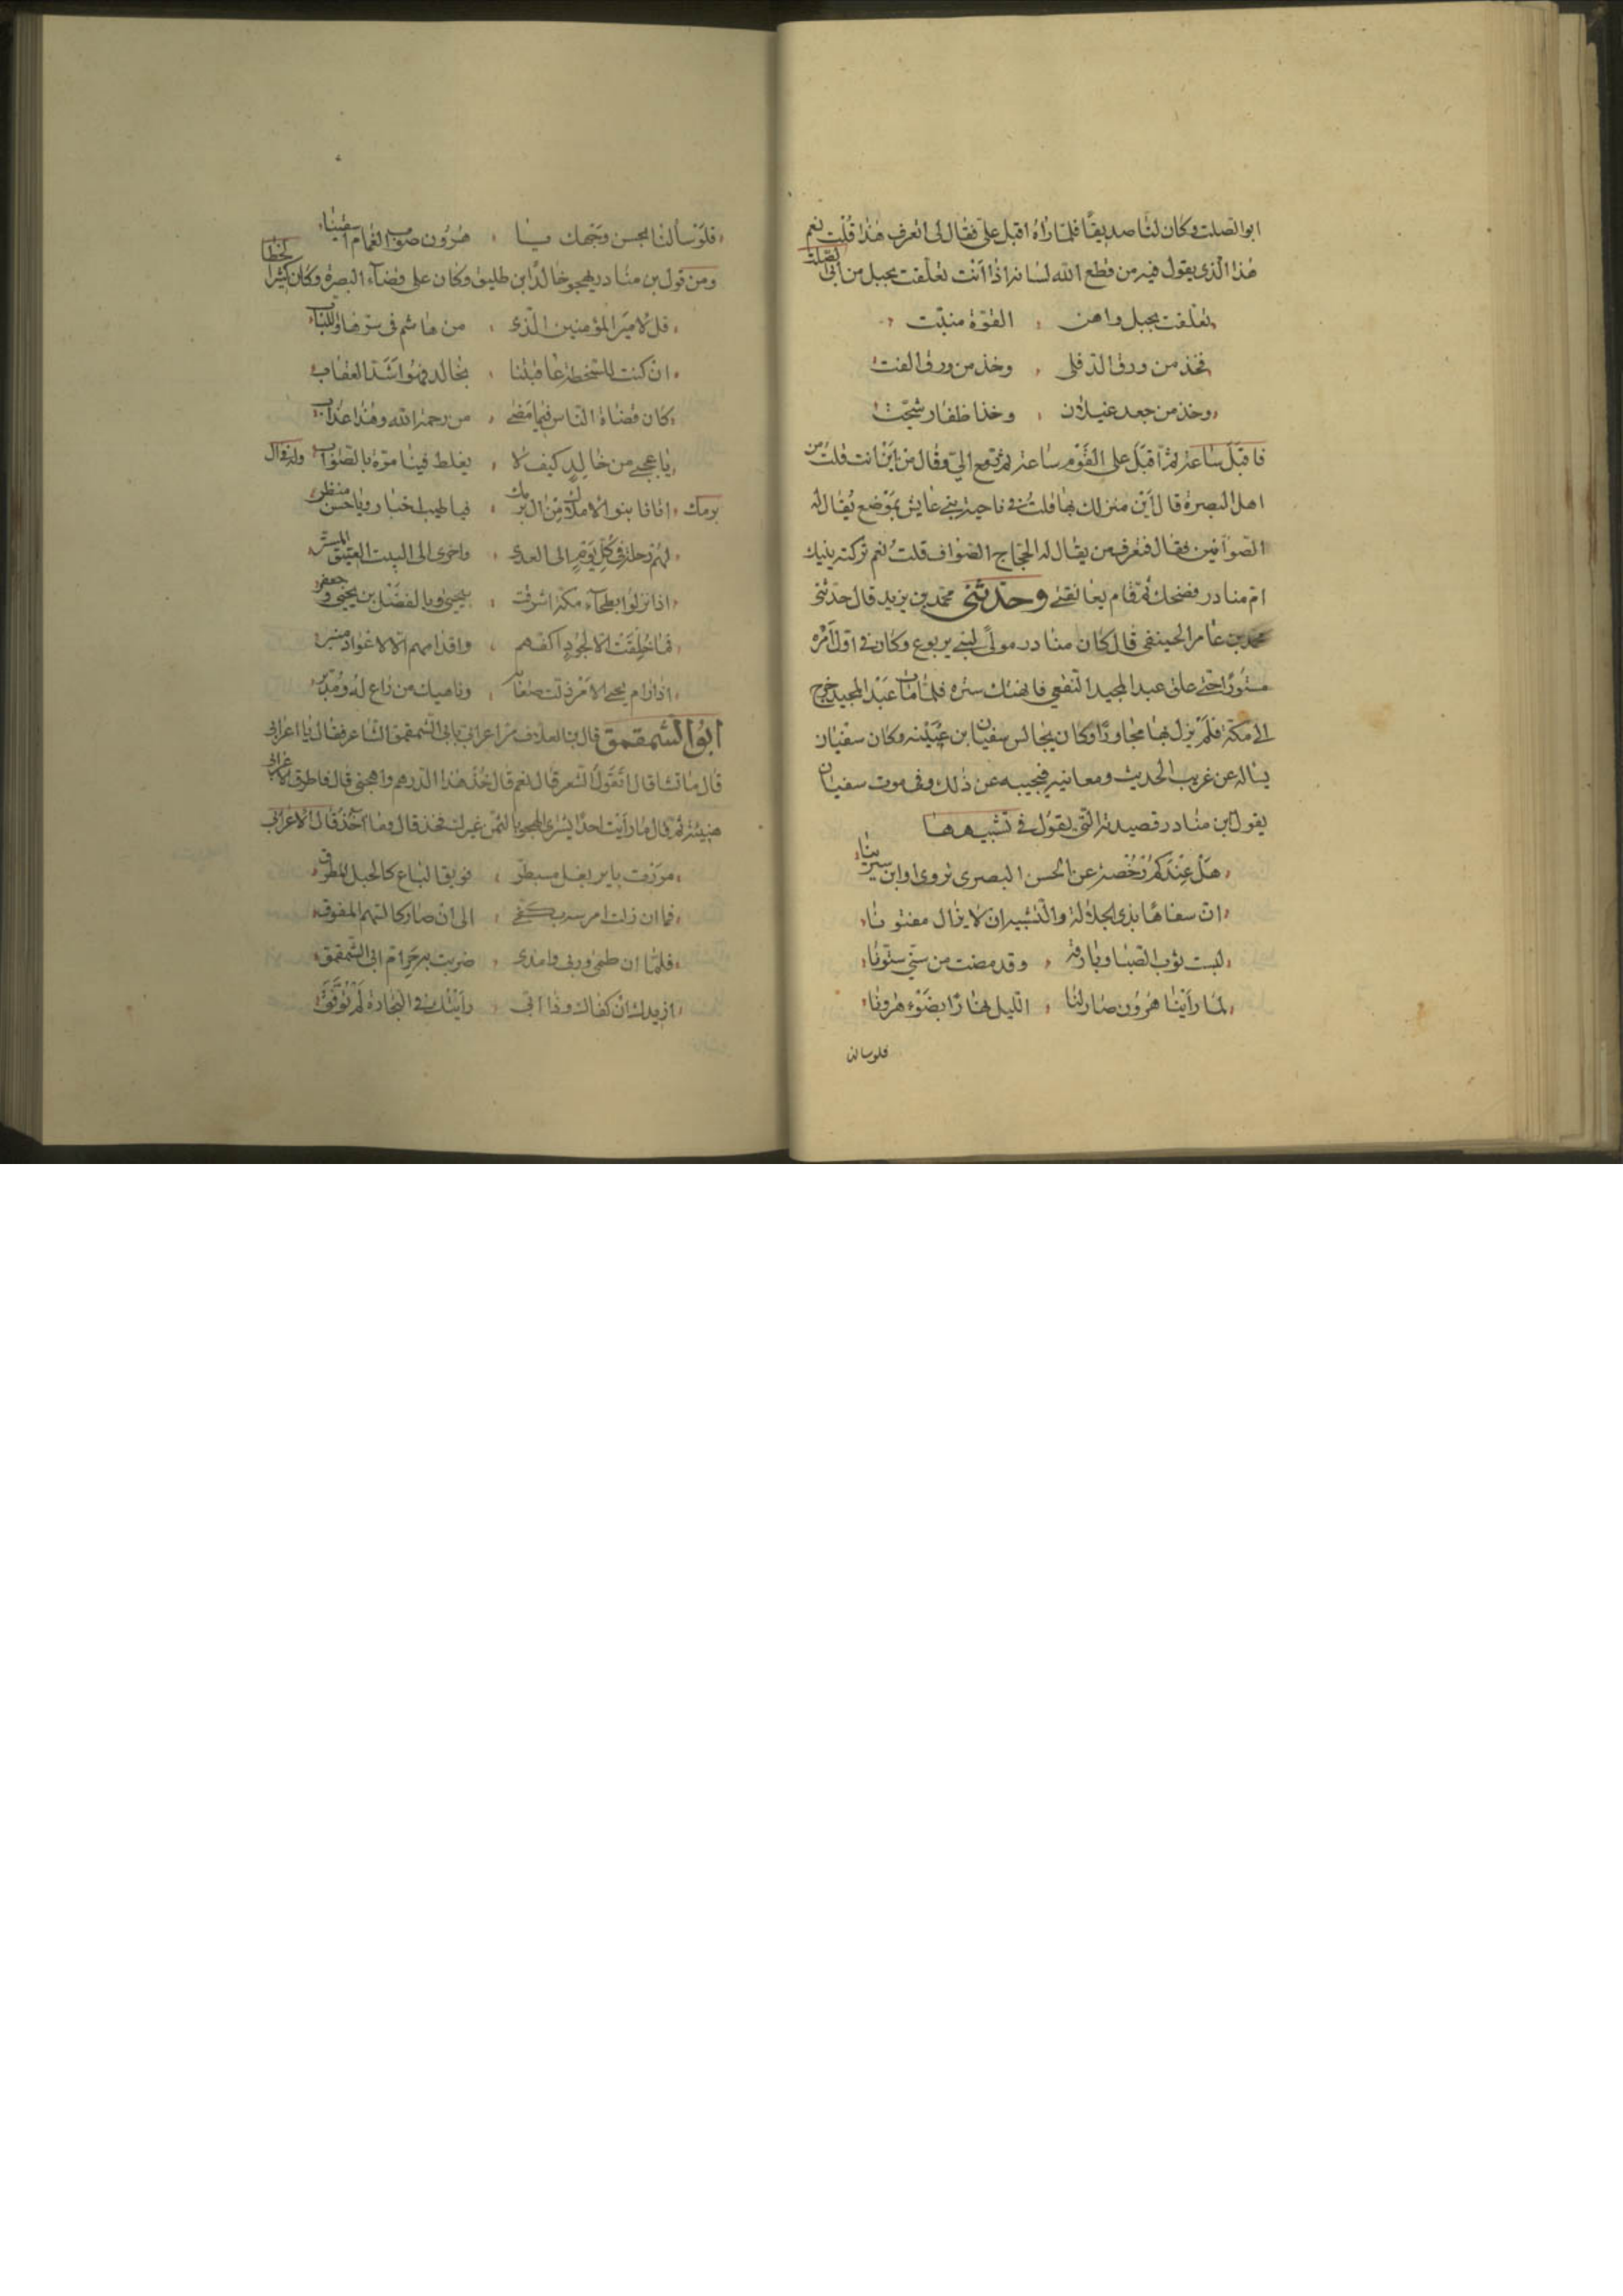 ابو الصلت وكان لنا صديقًا فلما رآه اقبل علي فقال لي اتعرف هذا قلت نعم
هذا الذي يقول فيه من قطع الله لسانه اذا انت تعلقت بحبل من ابي الصلت
تعلقت بحبل واهن القوة منبت
فخذ من ورق الدفلى وخذ من ورق القت
وخذ من جعد غيلان وخذ اظفار شجت
فاقبل ساعة ثم اقبل على القوم ساعة ثم رجع الي وقال من اين انت قلت من
اهل البصرة قال اين منزلك بها قلت في ناحية بني عايش بموضع يقال له
الصوافين فقال فتعرف من يقال له الحجاج الصواف قلت نعم تركته ينيك
ام منادر فضحك ثم قام يعانقني وحدثني محمد بن يزيد قال حدثني
محمد بن عامر الحنيفي قال كان منادر مولى لبني يربوع وكان في اول امره
مستورًا حتى علق عبد المجيد الثقفي فانهتك ستره فلما مات عبد المجيد خرج
الى مكة فلم يزل بها مجاورًا وكان يجالس سفيان ابن عيينه وكان سفيان
يساله عن غريب الحديث ومعانيه فيجيبه عن ذلك وفي موت سفيان
يقول ابن منادر قصيدته التي يقول في تشبيهها
هل عندكم رخصة عن الحسن البصري تروى او ابن سيرينا
ان سفاهًا بذي الجلالة والشيب ان لا يزال مفتونا
لبست ثوب الصبا وبارقه وقد مضت من سني ستونا
لما راينا هرون صار لنا الليل نهارًا بضوء هرونا
فلو سالنا
فلو سألنا بحسن وجهك يا هرون صوب الغمام اسقينا
ومن قول بن منادر يهجو خالد ابن طليق وكان على قضآء البصرة وكان كثير الخطا
قل لامير المؤمنين الذي من هاشم في سرها واللباب
ان كنت للسخطة عاقبتنا بخالد فهو اشد العقاب
كان قضاة الناس فيما مضى من رحمة الله وهذا عذاب
يا عجبي من خالد كيف لا يغلط فينا مرة بالصواب وله في ال
برمك اتانا بنو الاملاك من ال برمك فيا طيب اخبار ويا حسن منظر
لهم رحلة في كل يوم الى العدى واخرى الى البيت العتيق المستر
اذا نزلوا بطحآء مكة اشرقت بيحيى وبالفضل بن يحيى وجعفر
فما خلقت الا لجود اكفهم واقدامهم الا لاعواد منبر
اذا رام يحيى الامر ذلت صعابه وناهيك من راع له ومدبر
ابو الشمقمق قال بن العلاف مر اعرابي بابي الشمقمق الشاعر فقال يا اعرابي
قال ما تشا قال اتقول الشعر قال نعم قال خذ هذا الدرهم واهجني قال فاطرق الاعرابي
هنيئة ثم قال ما رايت احدًا يشري الهجو بالثمن غيرك فخذ قال وما آخذ قال الاعرابي
مررت باير بغل مسبطر فويق الباع كالحبل المطوق
فما ان زلت امرسه بكفي الى ان صار كالسهم المفوق
فلما ان طمى وربى وامذى ضربت به حرام ابي الشمقمق
ازيدك ان كفاك وذا ابي رايتك في التجارة لم توفق